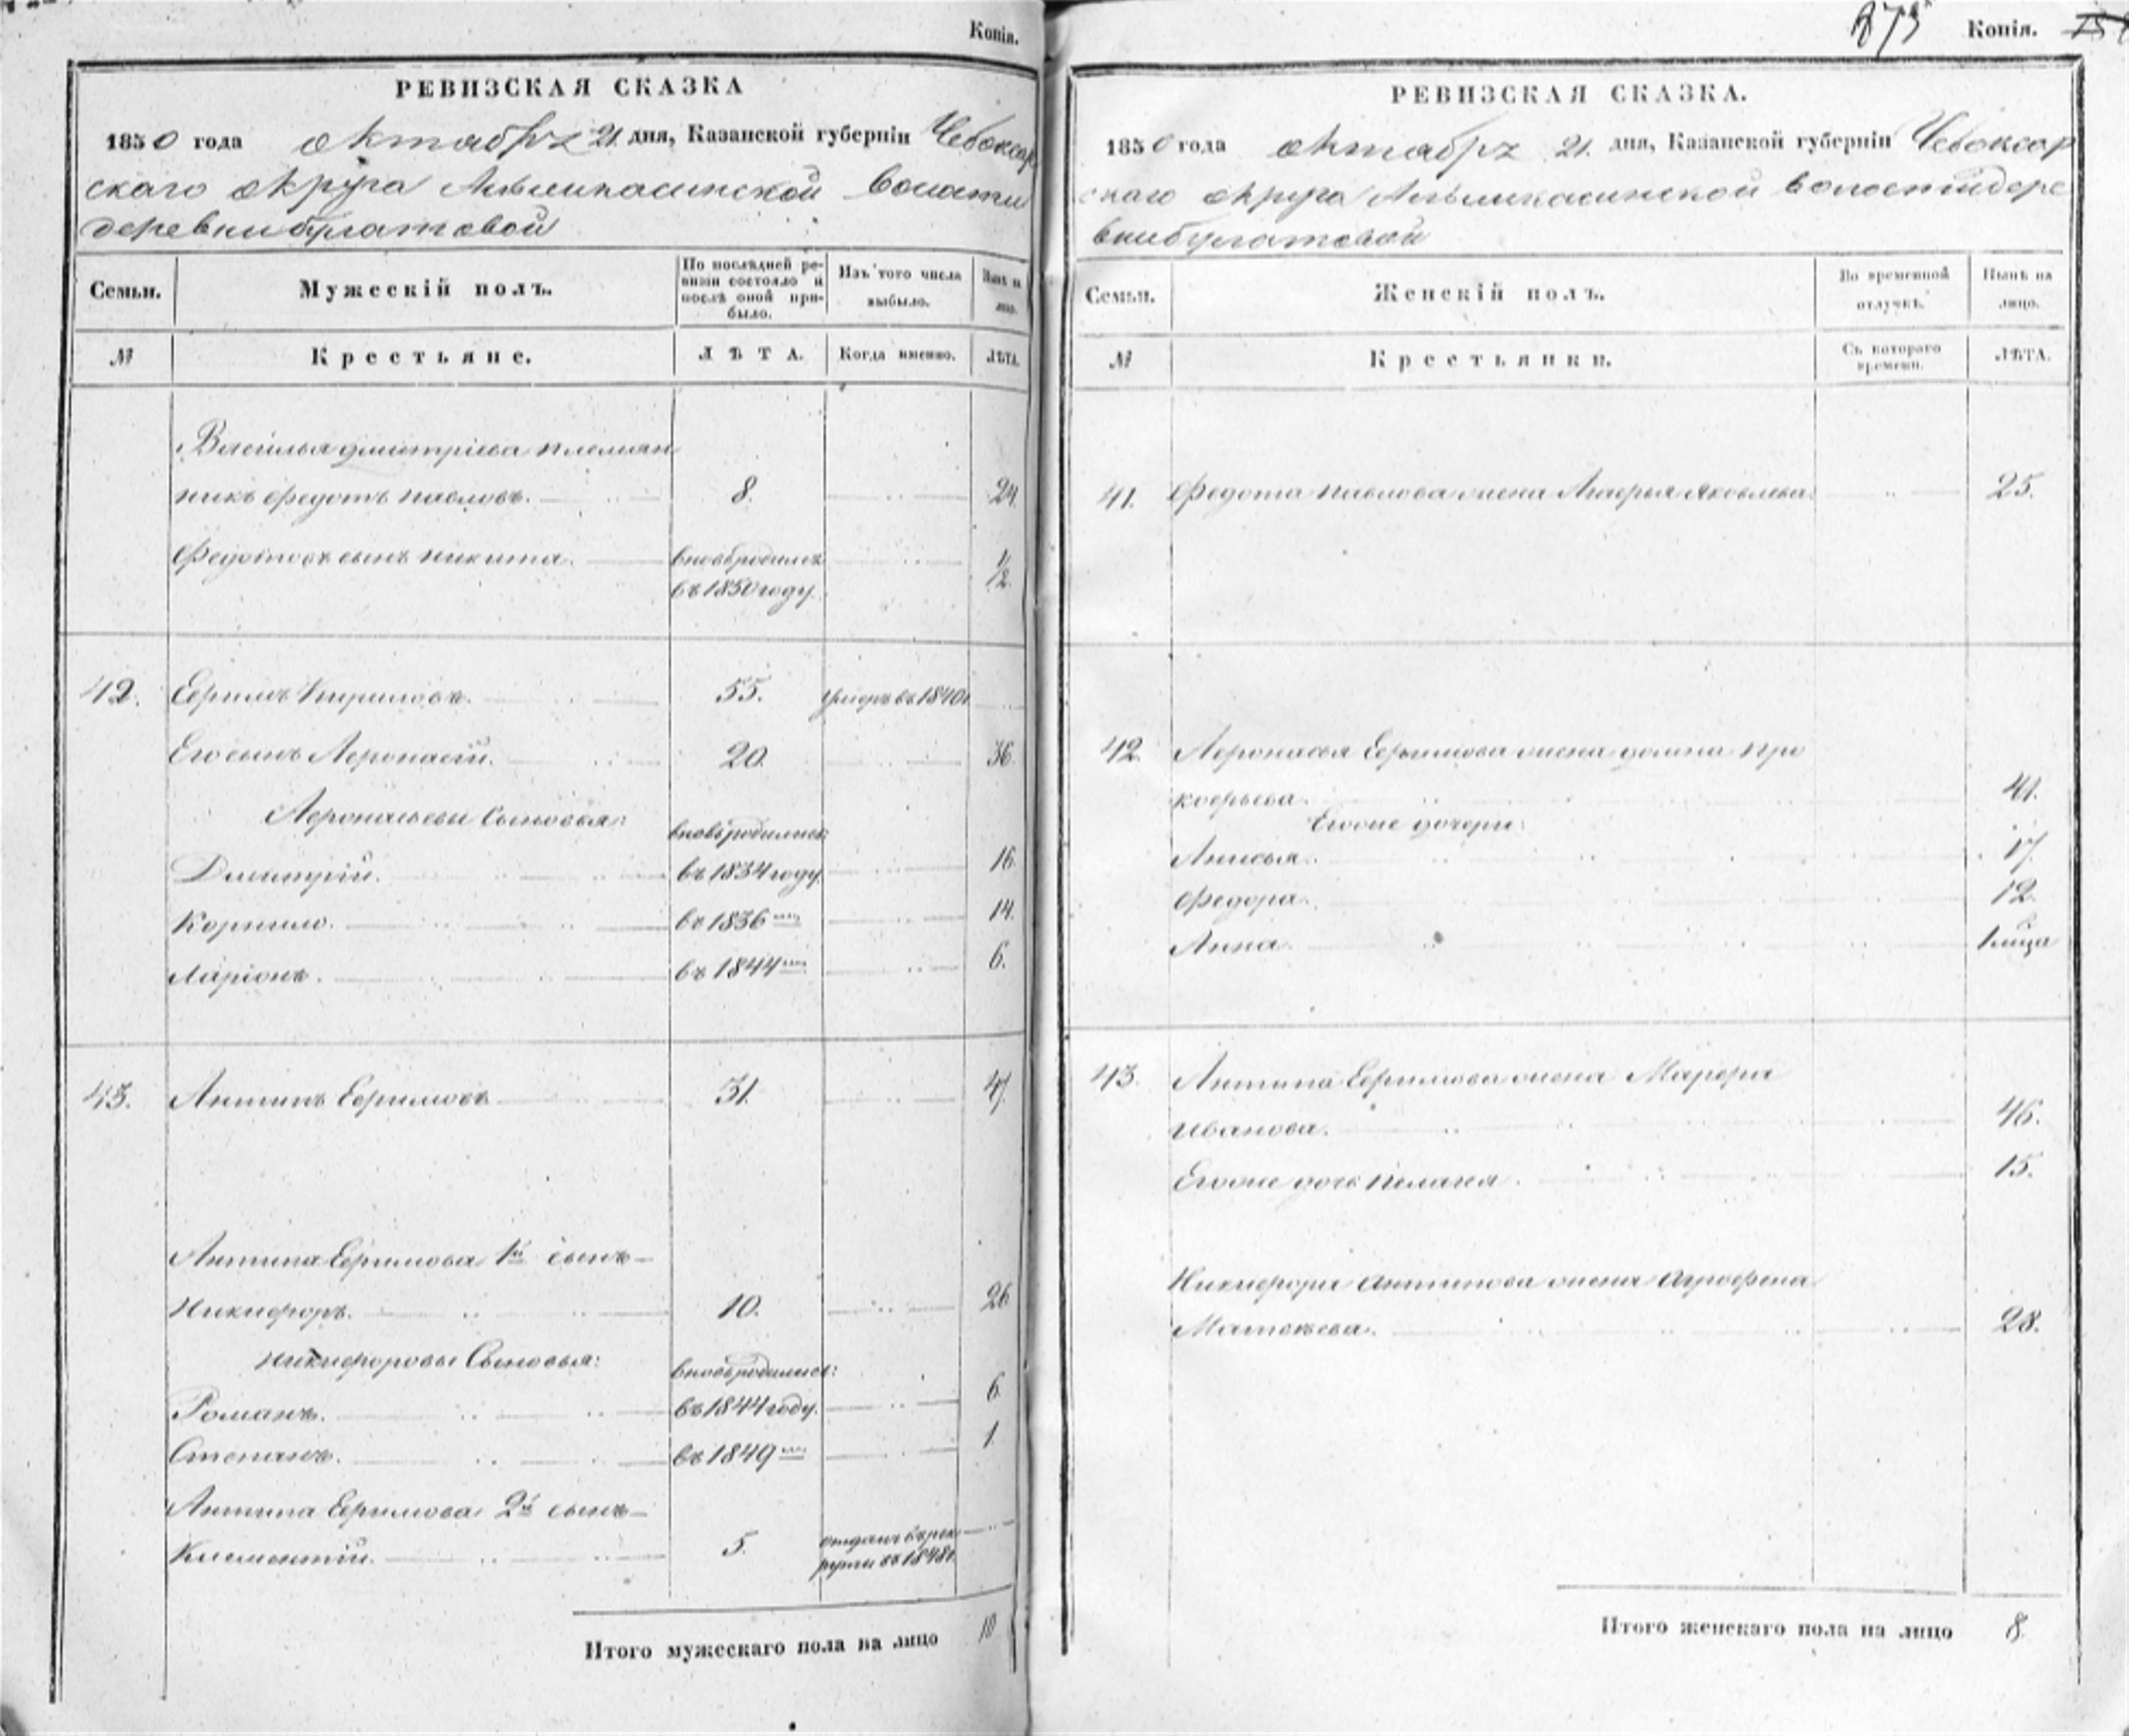 Копія.
РЕВИЗСКАЯ СКАЗКА
1850 года октября 21 дня, Казанской губерніи Чебоксар
скаго округа Алымкасинской волости
деревни булатовой
Семьи.
Мужескій полъ.
По послѣдней ре-
визіи состояло и
послѣ оной при-
было.
Изъ того числа
выбыло.
Нынѣ на
лицо.
№
Крестьяне.
ЛѢТА.
Когда именно.
ЛѢТА.
Василья дмитріева племян
никъ федотъ павловъ. 8. 24.
Федотовъ сынъ никита. вновь родился 1/2.
въ 1850 году.
42. Ефимъ Кириловъ. 55. умеръ въ 1840 г.
Его сынъ Афонасій. 20. 36.
Афонасьевы сыновья: вновь родились:
Дмитрій. въ 1834 году. 16.
Корнило. въ 1836 14.
Ларіонъ. въ 1844 6.
43. Антипъ Ефимовъ 31. 47.
Антипа Ефимова 1й сынъ
Никифоръ. 10. 26.
Никифоровы Сыновья: вновь родились:
Романъ. въ 1844 году. 6.
Степанъ. въ 1849 1.
Антипа Ефимова 2й сынъ
Климентій. 5. отданъ въ рек
руты въ 1848 г.
Итого мужескаго пола на лицо 10
875 Копія.
РЕВИЗСКАЯ СКАЗКА.
1850 года октября 21. дня, Казанской губерніи Чебоксар
скаго округа Алымкасинской волости дере
вни булатовой
Семьи.
Женскій полъ.
Во временной
отлучкѣ.
Нынѣ на
лицо.
№
Крестьянки.
Съ котораго
времени.
ЛѢТА.
41. Федота павлова жена Агафья яковлева. 25.
42. Афонасья Ефимова жена домна про
кофьева. 41.
Егоже дочери:
Анисья. 17.
Федора. 12.
Анна. 1 мѣца
43. Антипа Ефимова жена Марфа
Иванова. 46.
Егоже дочь пелагея. 15.
Никифора антипова жена Агрофена
Матвѣева. 28.
Итого женскаго пола на лицо 8.